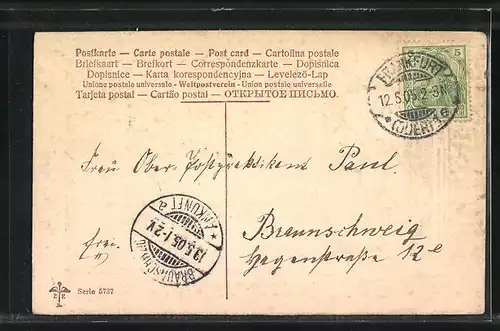 Postkarte — Carte postale — Post card — Cartolina postale
Briefkaart — Brefkort — Correspondenzkarte — Dopisnica
Dopisnice — Karta korespondencyjna — Levelező-Lap
Union postale universelle - Weltpostverein - Union postale universelle
Tarjeta postal — Cartão postal — ОТКРЫТОЕ ПИСЬМО.
5
FRANKFURT
12.5.05. 2-3N
* (ODER) *
Frau Ober-Postpraktikant Paul.
frei.
Braunschweig
Hagenstraße 12
BRAUNSCHWEIG
13.5.05. 1-2V.
* ANKUNFT
E E
Serie 5737